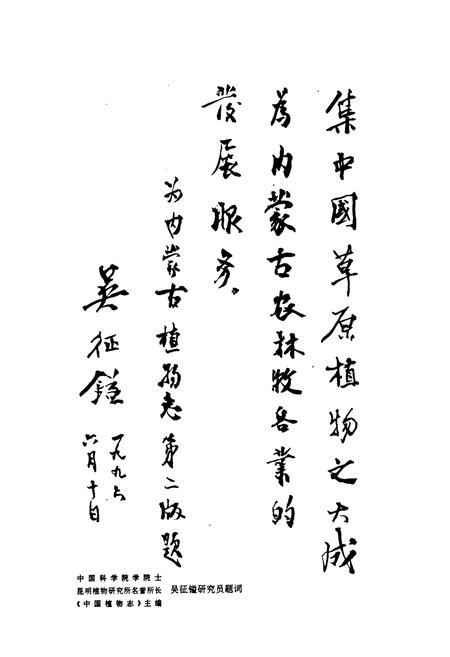 集中國草原植物之大成
為内蒙古农林牧各業的
发展服务。
为内蒙古植物志第二版题
吴征镒
一九九六
六月十日
中国科学院学院士
昆明植物研究所名誉所长
《中国植物志》主编
吴征镒研究员题词